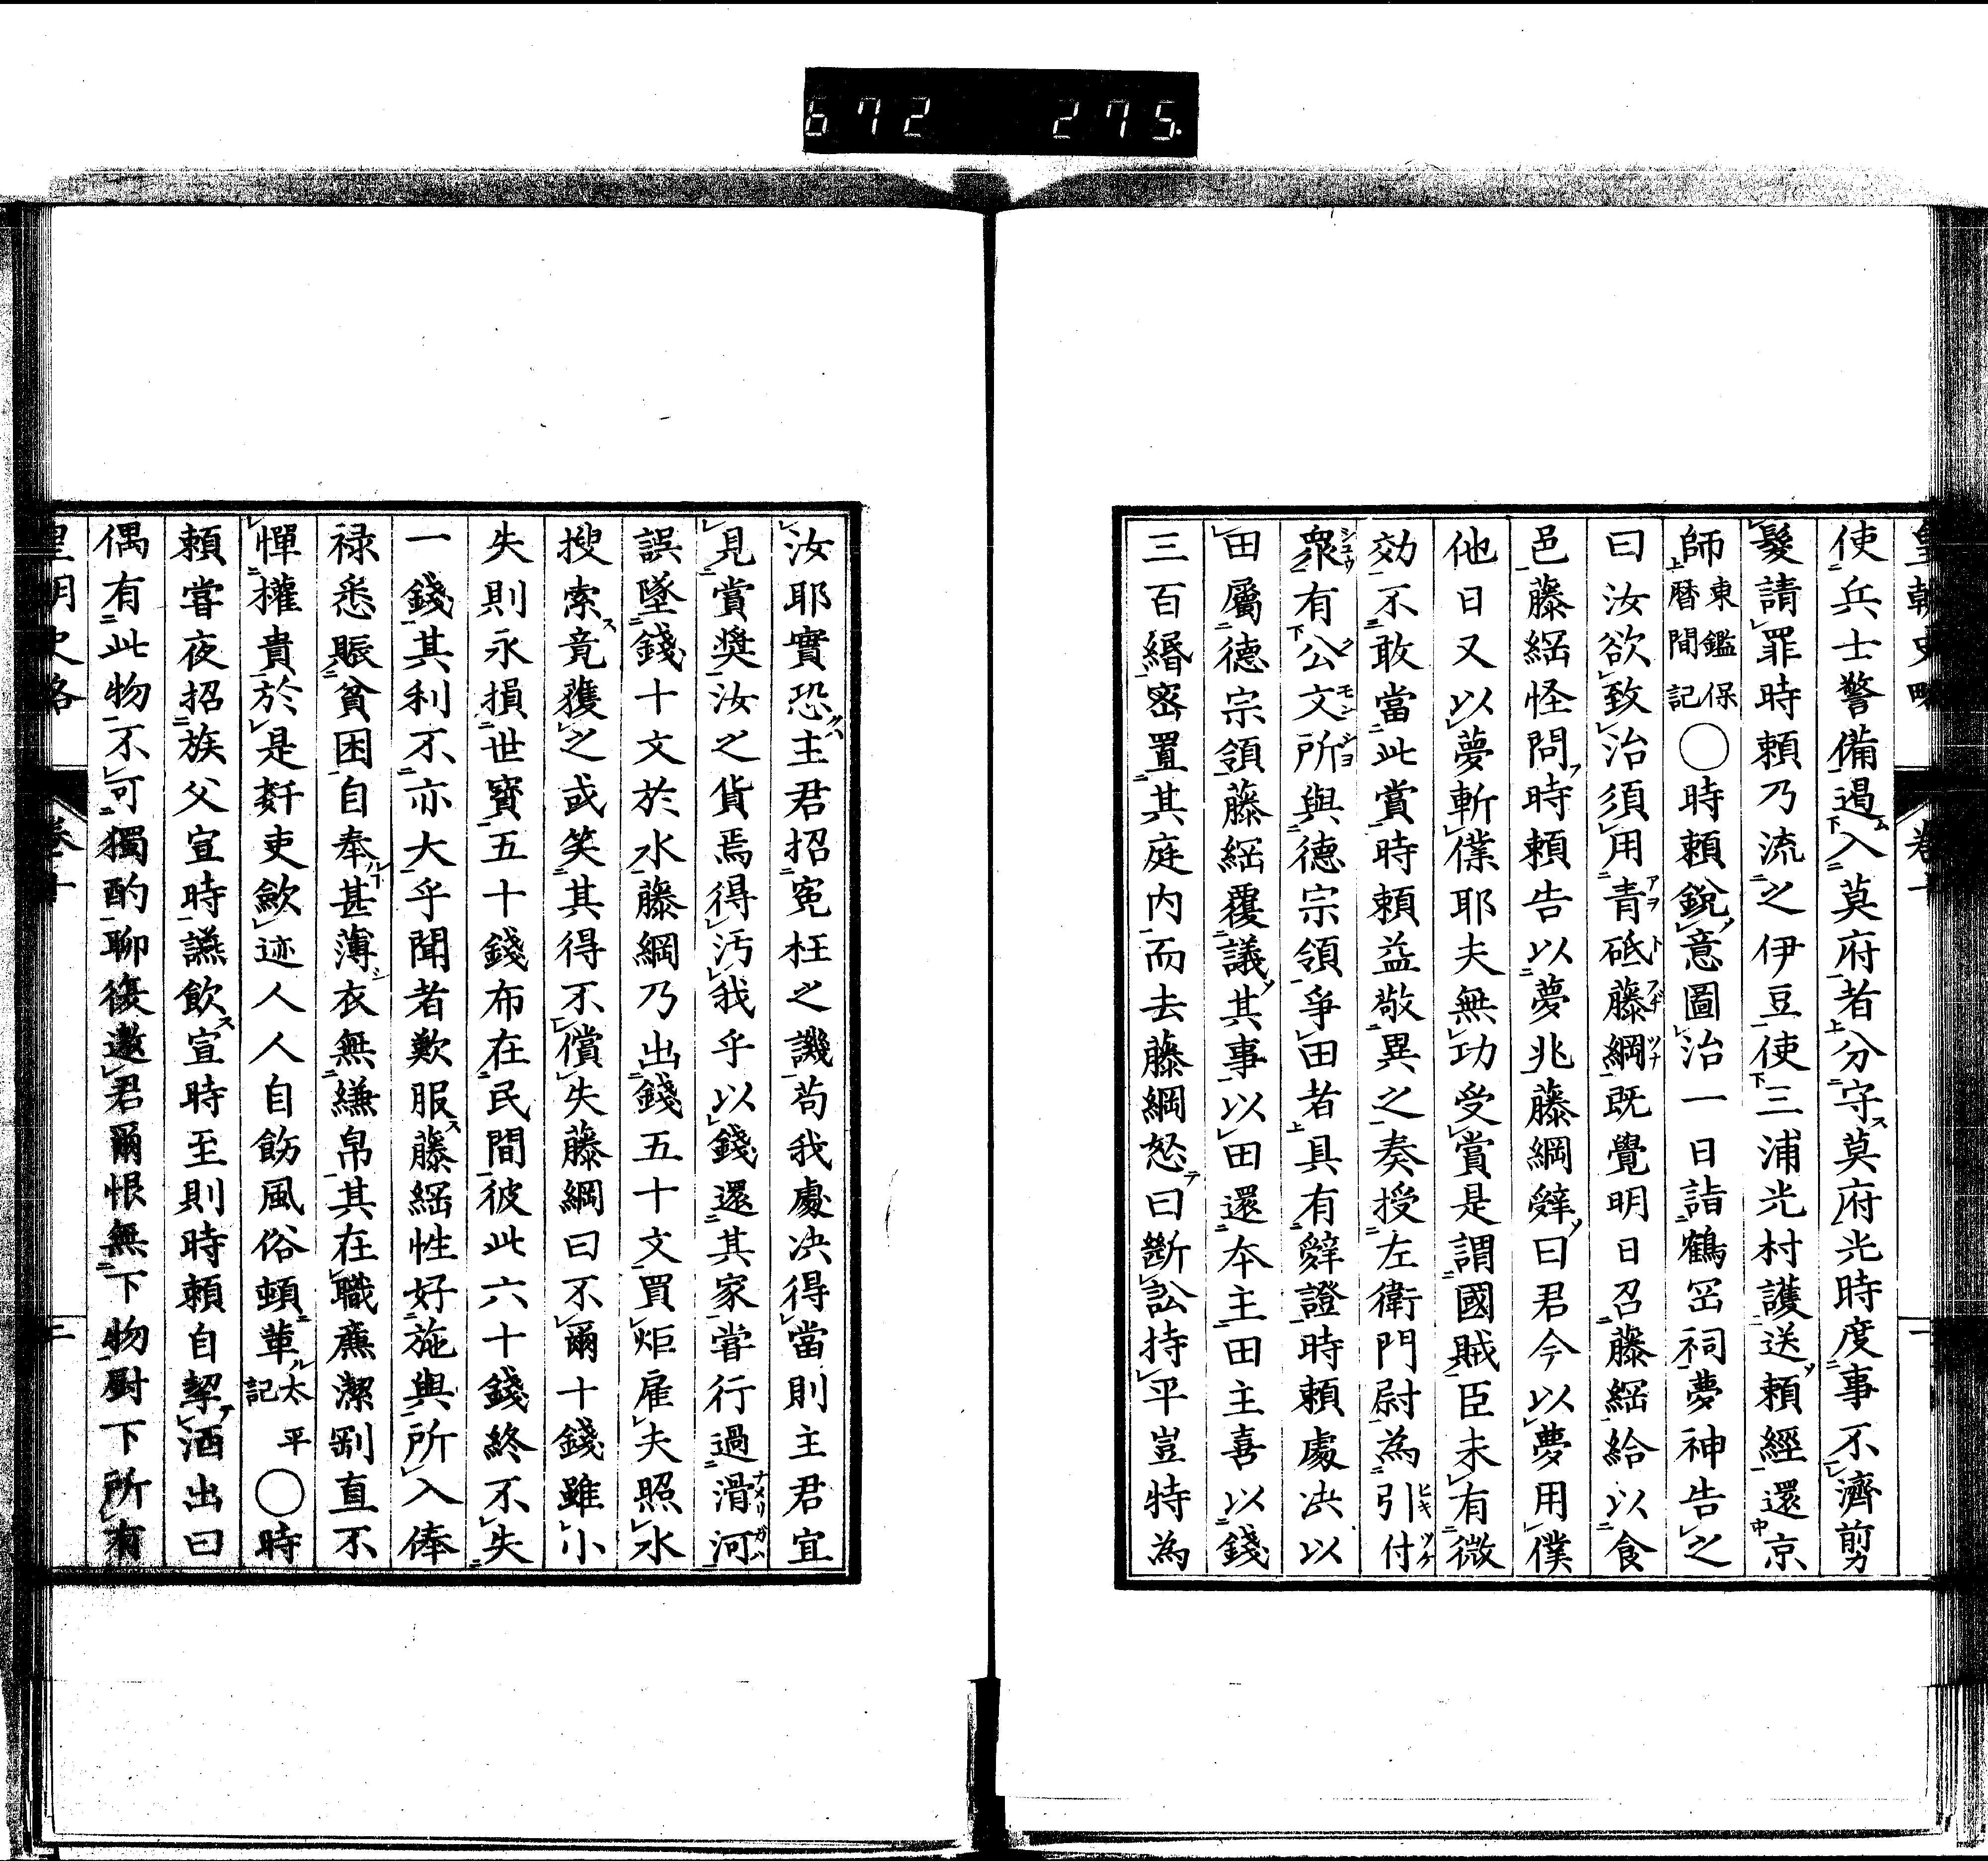 672 275.
皇朝史略 卷十 一
使兵士警備遏入莫府者分守莫府光時度事不濟剪
髮請罪時頼乃流之伊豆使三浦光村護送頼經還京
師東鑑保暦間記〇時頼鋭意圖治一日詣鶴岡祠夢神告之
曰汝欲致治須用青砥藤綱既覺明日召藤綱給以食
邑藤綱怪問時頼告以夢兆藤綱辭曰君今以夢用僕
他日又以夢斬僕耶夫無功受賞是謂國賊臣未有微
効不敢當此賞時頼益敬異之奏授左衛門尉為引付
衆有公文所與德宗領爭田者具有辭證時頼處決以
田屬德宗領藤綱覆議其事以田還本主田主喜以錢
三百緡密置其庭内而去藤綱怒曰斷訟持平豈特為
汝耶實恐主君招冤枉之譏苟我處决得當則主君宜
見賞奬汝之貨焉得汚我乎以錢還其家嘗行過滑河
誤墜錢十文於水藤綱乃出錢五十文買炬雇夫照水
搜索竟獲之或笑其得不償失藤綱曰不爾十錢雖小
失則永損世寶五十錢布在民間彼此六十錢終不失
一錢其利不亦大乎聞者歎服藤綱性好施與所入俸
禄悉賑貧困自奉甚薄衣無縑帛其在職廉潔剛直不
憚權貴於是姧吏歛迹人人自飭風俗頓革太平記〇時
頼嘗夜招族父宣時讌飲宣時至則時頼自挈酒出曰
偶有此物不可獨酌聊復邀君爾恨無下物厨下所有
皇朝史略 卷十 二